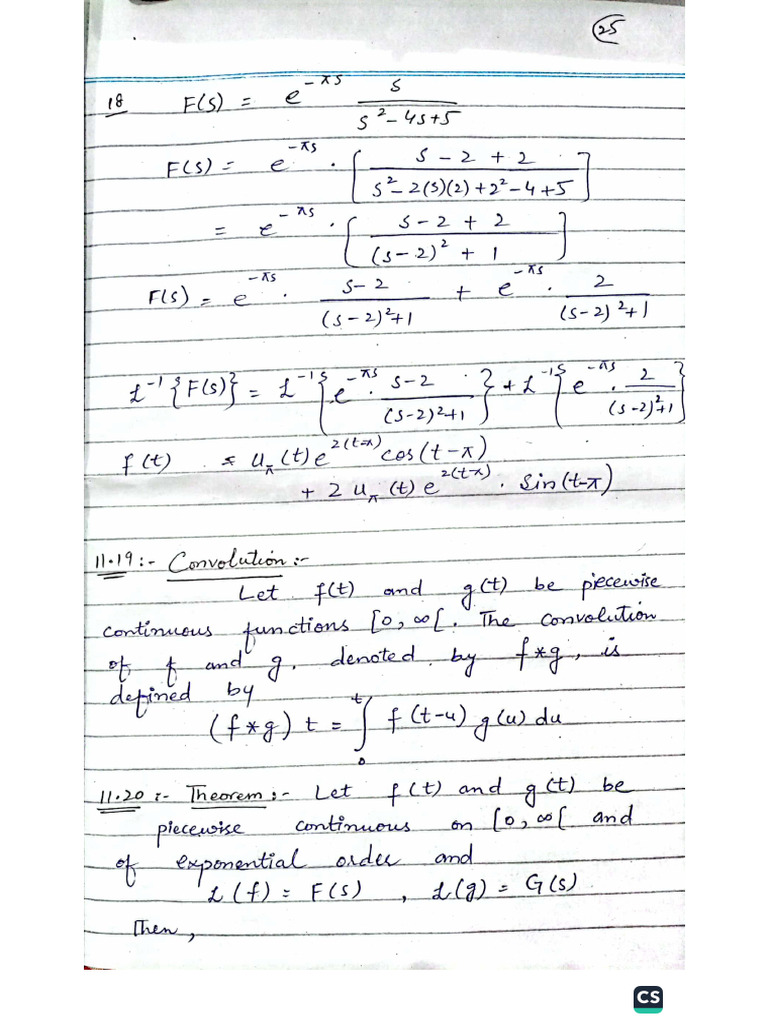 25
18 F(s) = e^{-πs} s/(s²-4s+5)
F(s) = e^{-πs} · [(s-2+2)/(s²-2(s)(2)+2²-4+5)]
= e^{-πs} · [(s-2+2)/((s-2)²+1)]
F(s) = e^{-πs} · (s-2)/((s-2)²+1) + e^{-πs} · 2/((s-2)²+1)
ℒ⁻¹{F(s)} = ℒ⁻¹{e^{-πs} · (s-2)/((s-2)²+1)} + ℒ⁻¹{e^{-πs} · 2/((s-2)²+1)}
f(t) = u_π(t) e^{2(t-π)} cos(t-π)
+ 2 u_π(t) e^{2(t-π)} · Sin(t-π)
11.19:- Convolution:-
Let f(t) and g(t) be piecewise
continuous functions [0, ∞[. The convolution
of f and g, denoted by f*g, is
defined by
(f*g) t = ∫₀ᵗ f(t-u) g(u) du
11.20:- Theorem:- Let f(t) and g(t) be
piecewise continuous on [0, ∞[ and
of exponential order and
ℒ(f) = F(s) , ℒ(g) = G(s)
Then,
CS